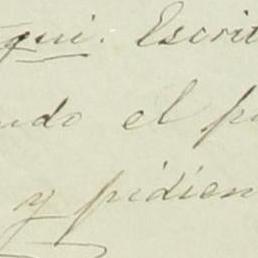 qui. Escrit
ndo el p
y pidien